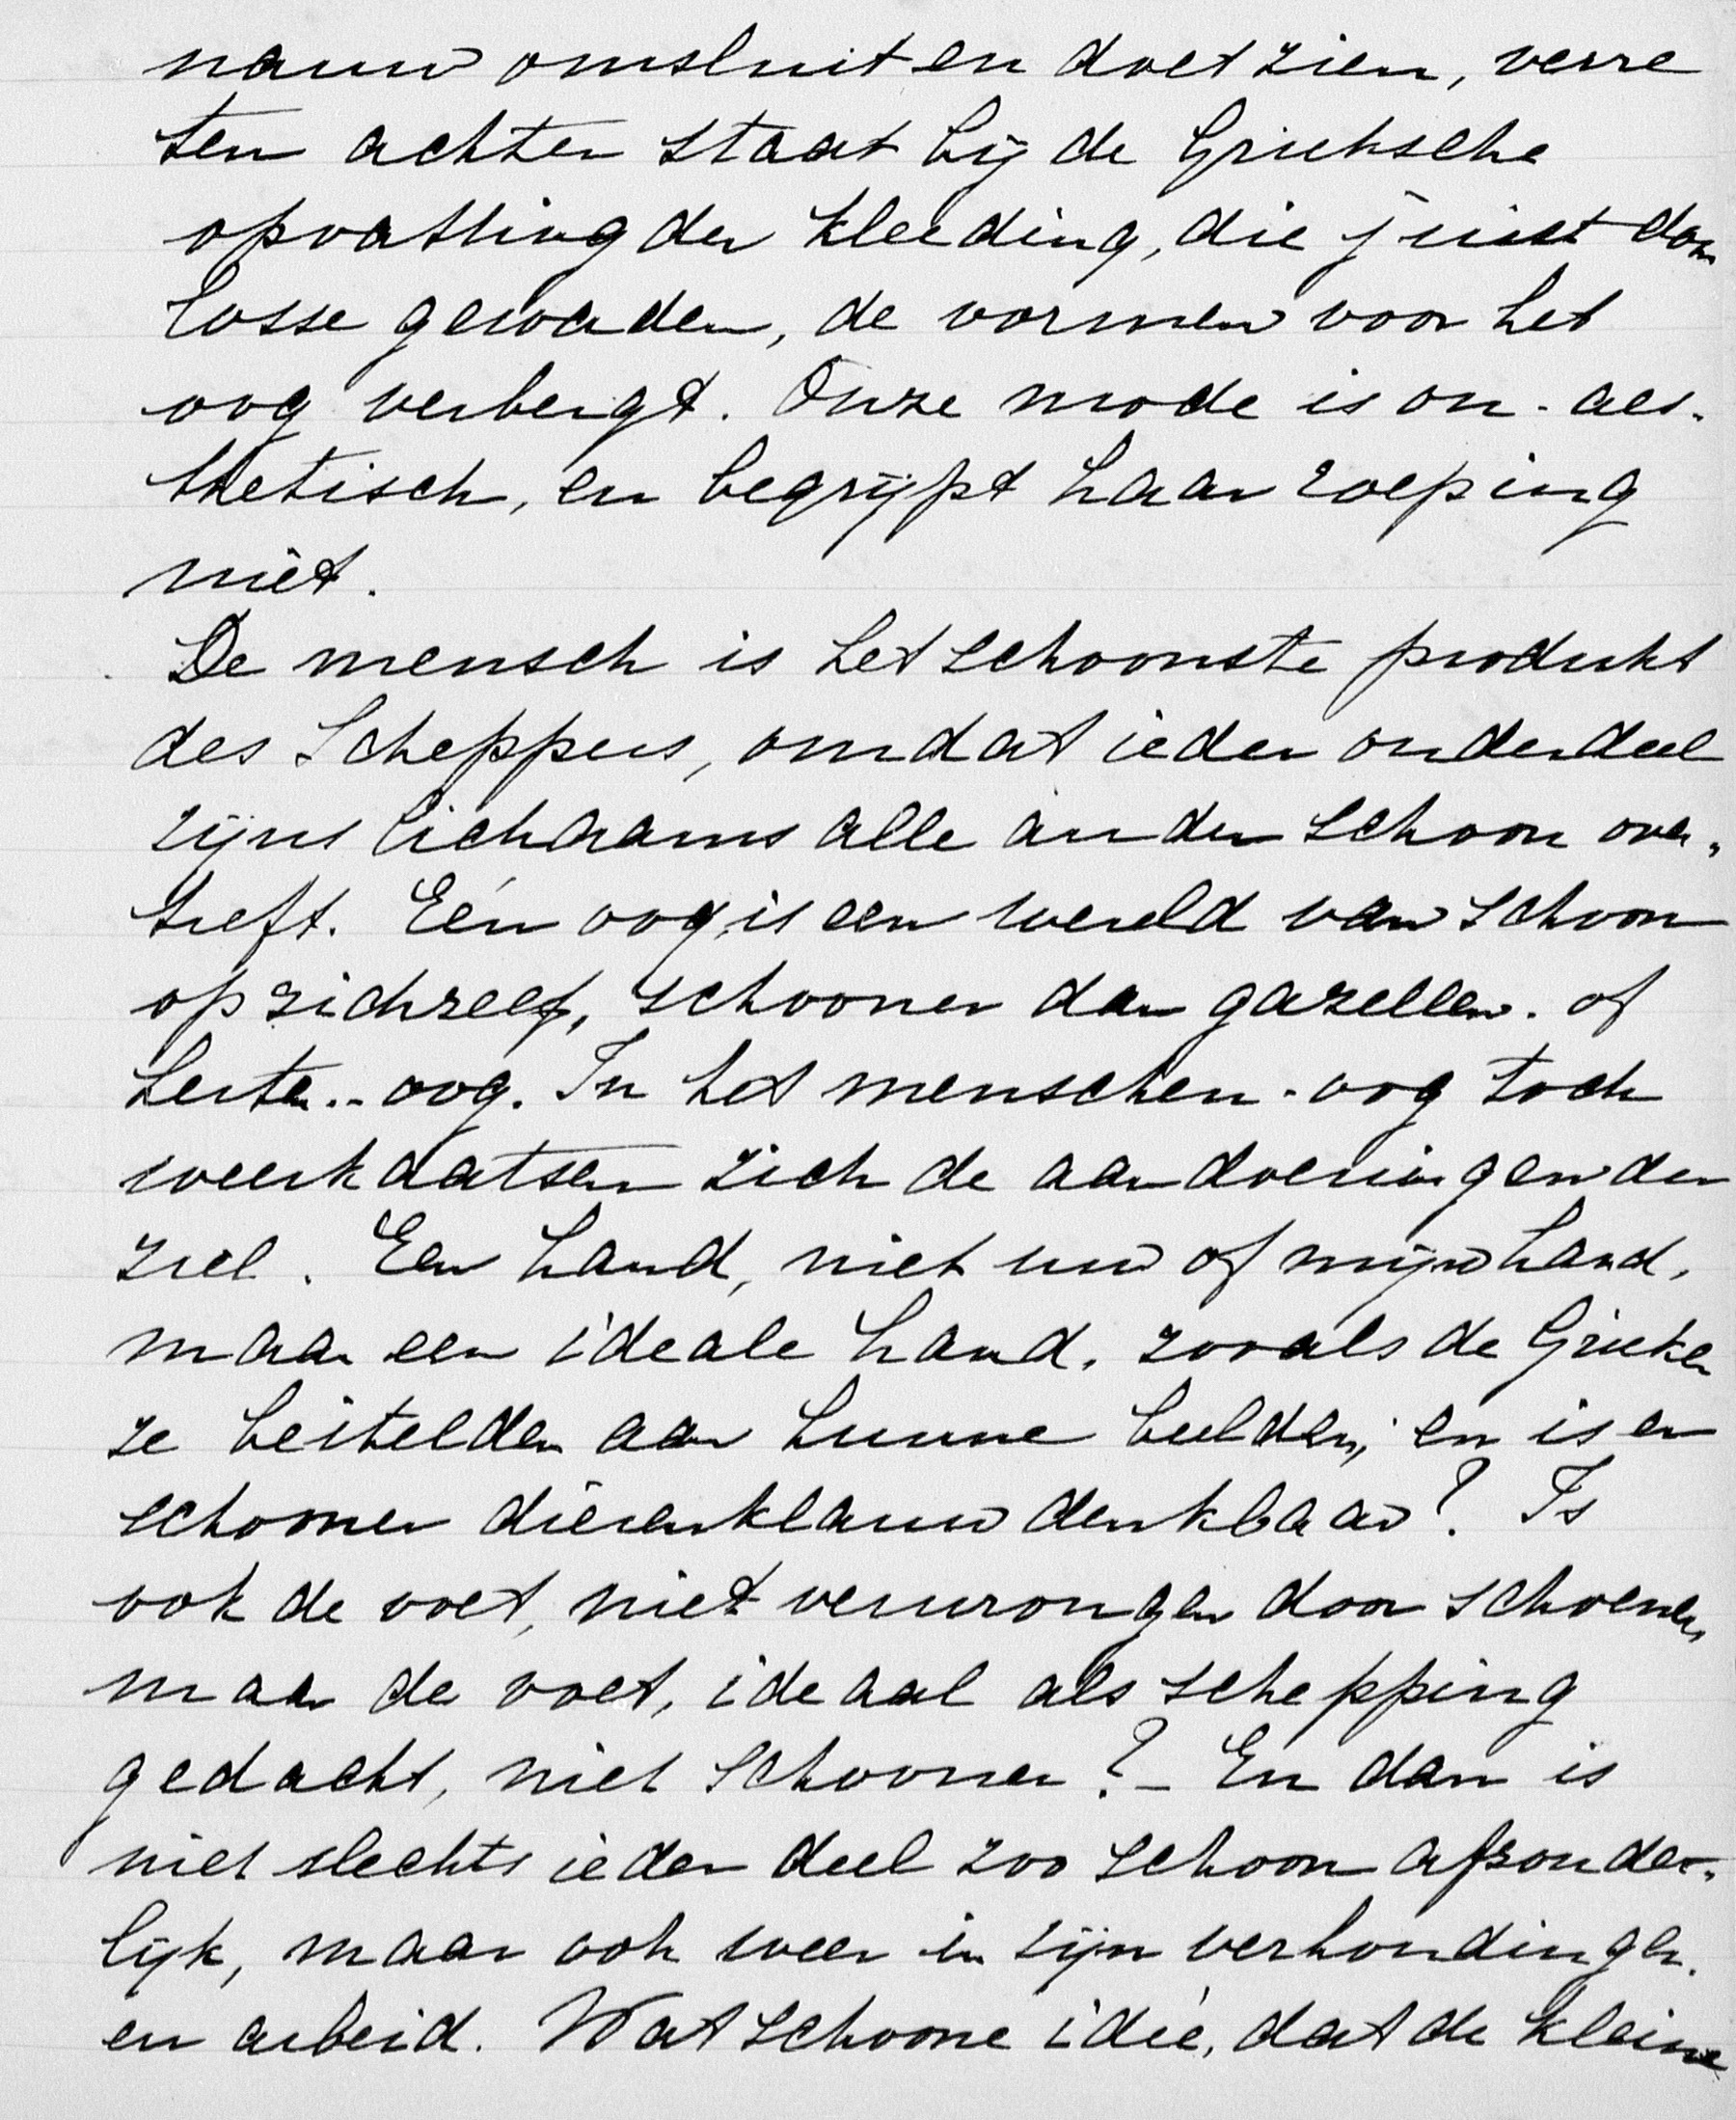 nauw omsluit en doet zien, verre
ten achter staat bij de Grieksche
opvatting der kleeding, die juist door
losse gewaden, de vormen voor het
oog verbergt. Onze mode is on-aes-
thetisch, en begrijpt haar roeping
niet.
De mensch is het schoonste produkt
des Scheppers, omdat ieder onderdeel
zijns lichaams alle ander schoon over-
treft. Eén oog is een wereld van schoon
op zichzelf, schooner dan gazellen- of
herten-oog. In het menschen-oog toch
weerkaatsen zich de aandoeningen der
ziel. Een hand, niet uw of mijn hand,
maar een ideale hand, zooals de Grieken
ze beitelden aan hunne beelden, en is er
schooner dierenklauw denkbaar? Is
ook de voet, niet verwrongen door schoenen,
maar de voet, ideaal als schepping
gedacht, niet schooner? – En dan is
niet slechts ieder deel zoo schoon afzonder-
lijk, maar ook weer in zijn verhoudingen
en arbeid. Wat schoone idée, dat de kleine